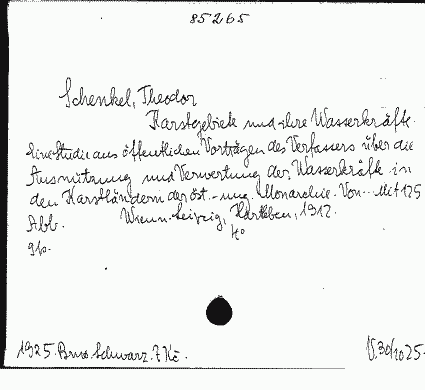 85265
Schenkel, Theodor
Karstgebiete und ihre Wasserkräfte.
Eine Studie aus öffentlichen Vorträgen des Verfassers über die
Ausnützung und Verwertung der Wasserkräfte in
den Karstländern der öst.-ung. Monarchie. Von... Mit 125
Abb. Wien u. Leipzig, Hartleben, 1912.
4°
1925. Schwarz. 7 Kč. V. 30/10 25.